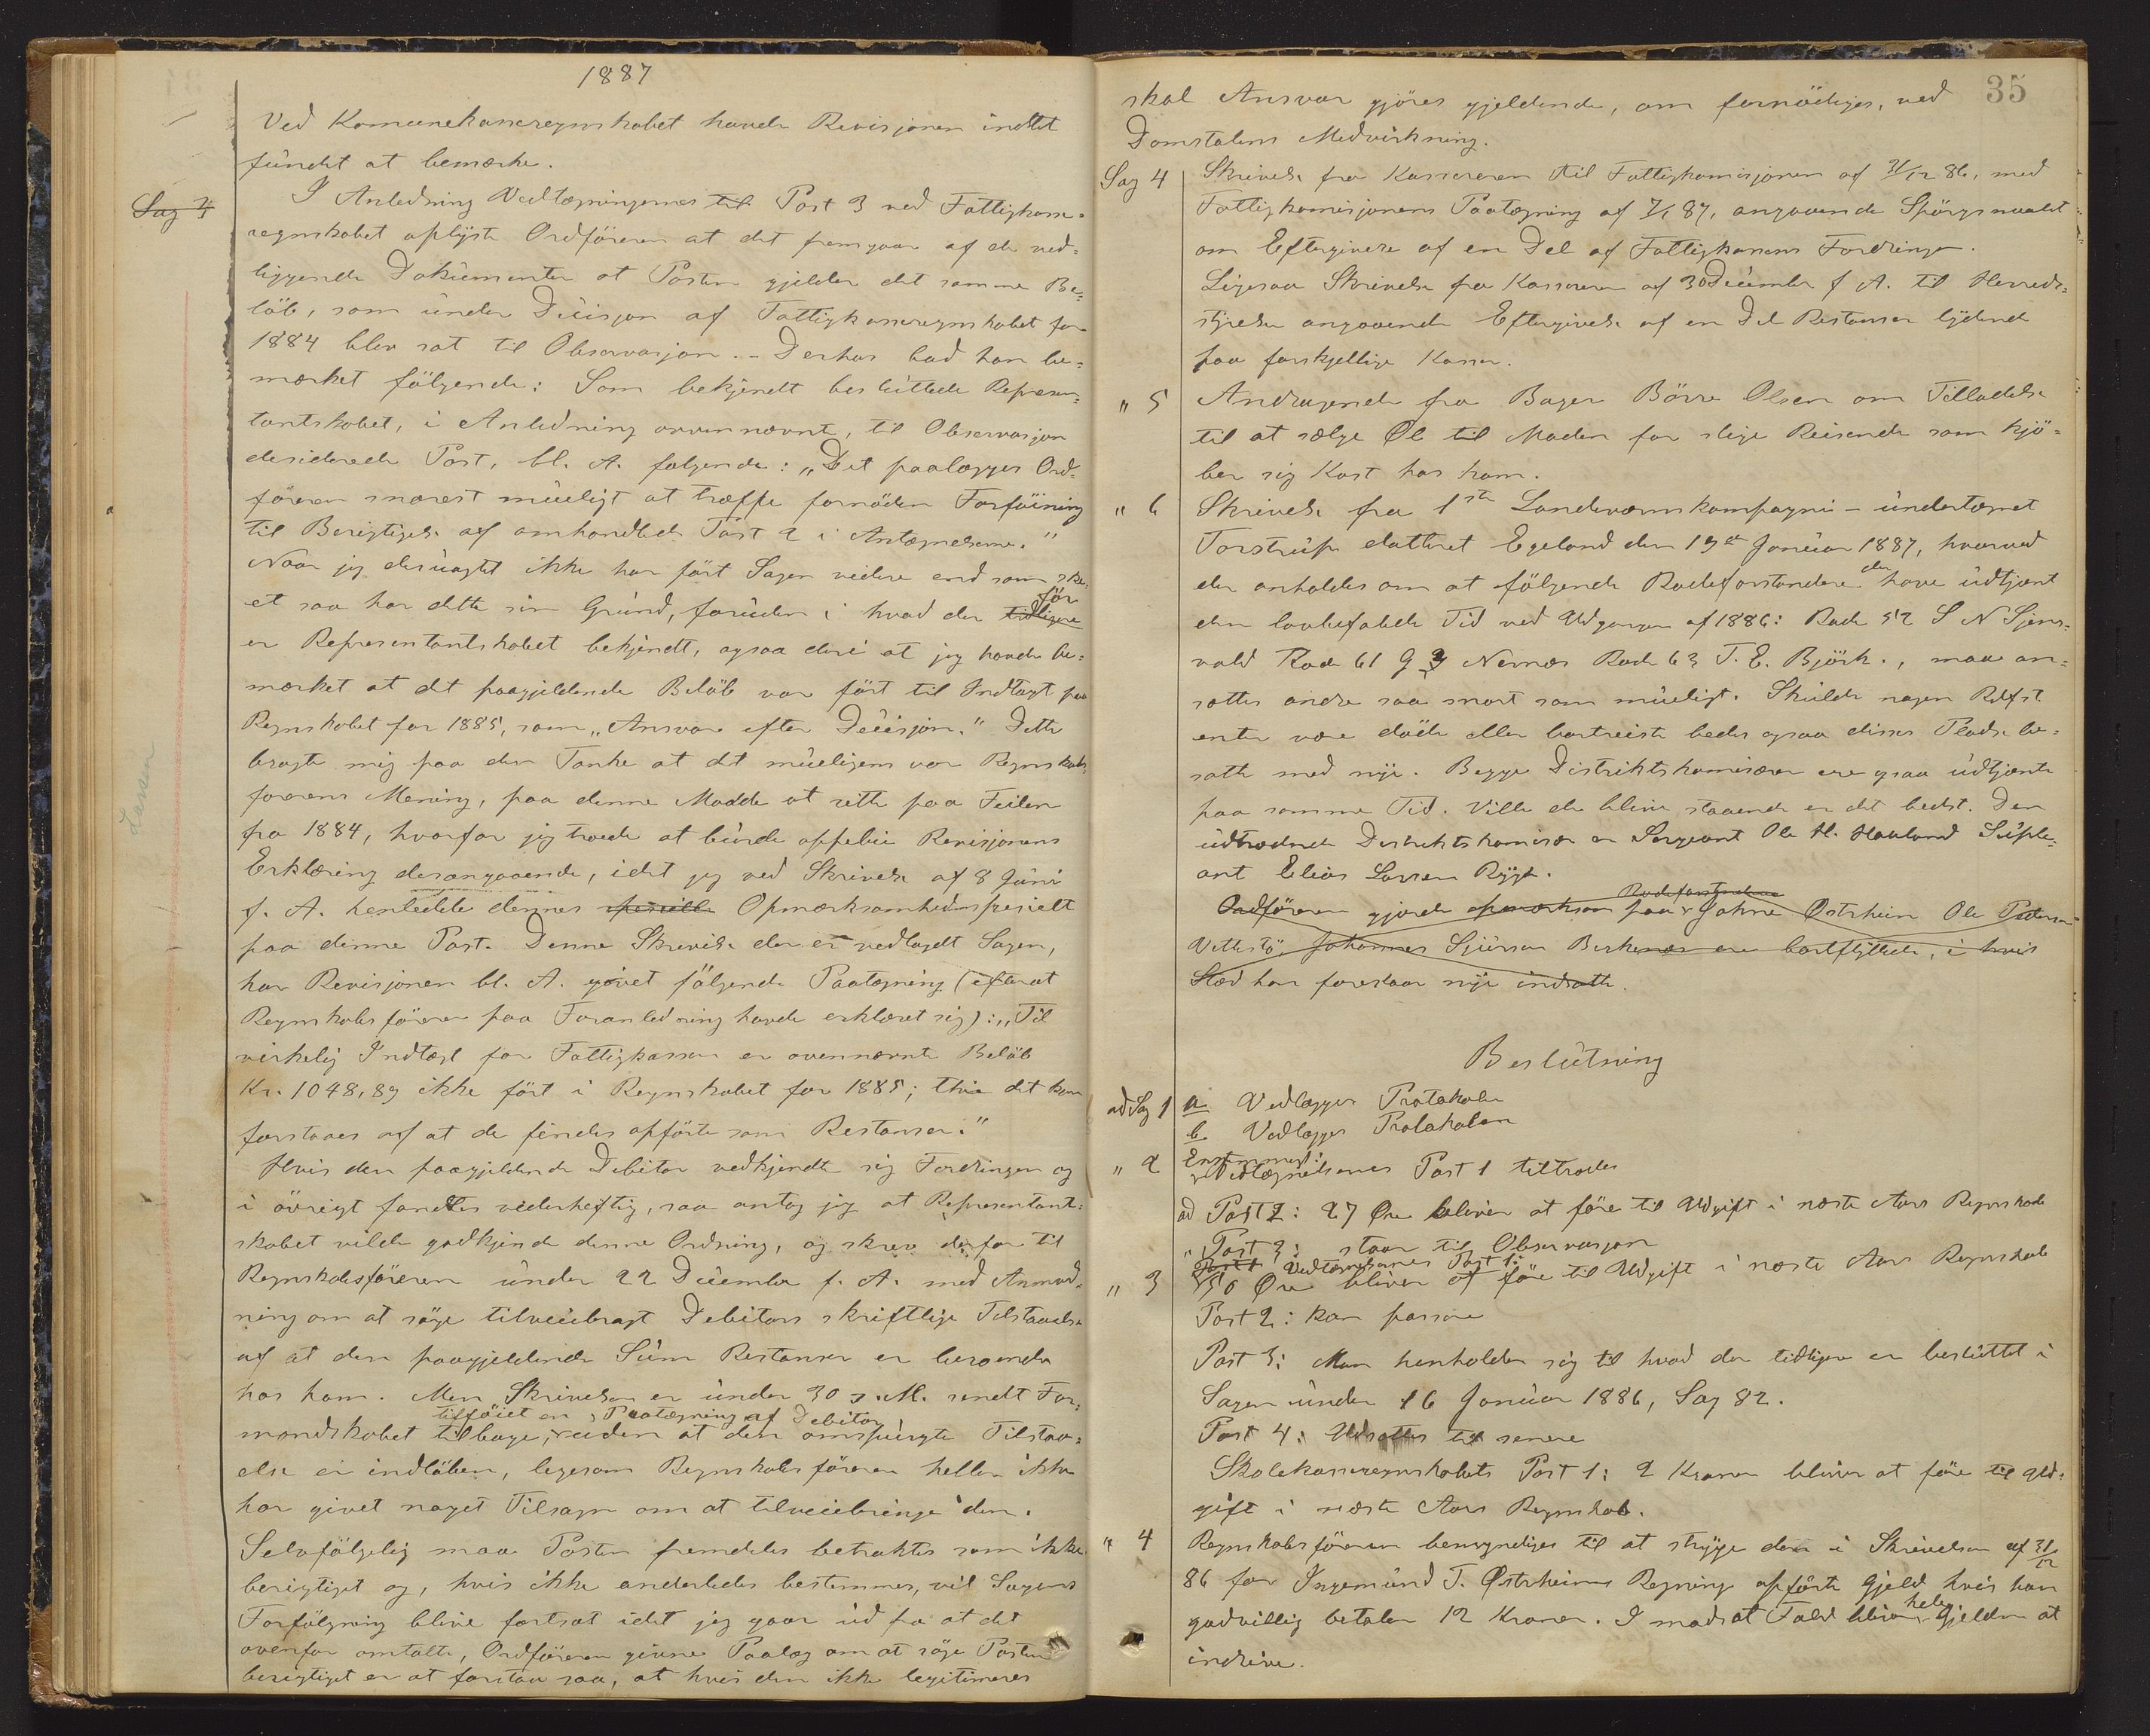 1887
Ved Komunekasseregnskabet havde Revisjonen indtet
fundet at bemærke.
Sag 3
I Anledning Vedtægningernes til Post 3 ved Fattigkasse-
regnskabet oplyste Ordföreren at det fremgaar af de ved-
liggende Dokumenter at Posten gjelder det samme Be-
löb, som under Decisjon af Fattigkasseregnskabet for
1884 blev sat til Observasjon. - Derhos bad han be-
mærket fölgende: Som bekjendt besluttede Represen-
tantskabet, i Anledning ovennævnte, til Observasjon
desiderede Post, bl. A. folgende: "Det paalægges Ord-
föreren snarest mueligt at træffe fornöden Forföining
til Berigtigelse af omhandlede Post 2 i Antegnelserne."
Naar jeg desuagtet ikke har fört Sagen videre end som ske-
et saa har dette sin Grund, foruden i hvad der tidligere för
er Representantskabet bekjendt, ogsaa deri at jeg havde be-
mærket at det paagjeldende Belöb var fört til Indtægt paa
Regnskabet for 1885, som "Ansvar efter Decisjon." Dette
bragte mig paa den Tanke at det mueligens var Regnskabs-
förerens Mening, paa denne Maade at rette paa Feilen
fra 1884, hvorfor jeg troede at burde oppebie Revisjonens
Erklæring desangaaende, idet jeg ved Skrivelse af 8 Juni
f. A. henledede dennes specielle Opmærksomhed specielt
paa denne Post. Denne Skrivelse der er vedlagdt Sagen,
har Revisjonen bl. A. givet fölgende Paategning (efterat
Regnskabsföreren paa Foranledning havde erklæret sig): "Til
virkelig Indtægt for Fattigkassen er ovennævnte Belöb
Kr. 1048,89 ikke fört i Regnskabet for 1885; thi det kan
forstaaes af at de findes opförte som Restanser."
Hvis den paagjeldende Debitor vedkjendte sig Fordringen og
i övrigt fandtes vederheftig, saa antog jeg at Representant-
skabet vilde godkjende denne Ordning, og skrev derfor til
Regnskabsföreren under 22 December f. A. med Anmod-
ning om at söge tilveiebragt Debitors skriftlige Tilstaaelse
af at den paagjeldende Sum Restanser er beroende
hos ham. Men Skrivelsen er under 30 s. M. sendt For-
mandskabet tilbage, tilföiet en Paategning af Debitor uden at den omspurgte Tilstaa-
else er indlöben, ligesom Regnskabsföreren heller ikke
har givet noget Tilsagn om at tilveiebringe den.
Selvfölgelig maa Posten fremdeles betraktes som ikke
berigtiget og, hvis ikke anderledes bestemmes, vil Sagens
Forfölgning blive fortsat idet jeg gaar ud fra at det
ovenfor omtalte, Ordföreren givne Paalæg om at söge Posten
berigtiget er at forstaa saa, at hvis den ikke legitimeres
Larsen
35
skal Ansvar gjöres gjeldende, om fornödiges, ved
Domstolens Medvirkning.
Sag 4 Skrivelse fra Kassereren til Fattigkomisjonen af 31/12 86, med
Fattigkomisjonens Paategning af 7/1 87, angaaende Spörgsmaalet
om Eftergivere af en Del af Fattigkassens Fordringer.
Ligesaa Skrivelse fra Kassereren af 30 December f. A. til Herreds-
styrelsen angaaende Eftergivelse af en Del Restanser lydende
paa forskjellige Kasser.
" 5 Andragende fra Bager Börre Olsen om Tilladelse
til at sælge Øl til Maden for slige Reisende som kjö-
ber sig Kost hos ham.
" 6 Skrivelse fra 1ste Landeværnskompagni - undertegnet
Torstrup dateret Egeland den 19de Januar 1887, hvorved
der anholdes om at fölgende Rodeforstandere der have udtjent
den lovbefalede Tid ved Udgangen af 1886: Rode 52 S N Sjens-
vold Rode 61 G J Nernæs Rode 63 T. E. Björk., maa an-
sættes andre saa snart som mueligt. Skulde nogen Rdfst
enten være döde eller bortreiste bedes ogsaa disses Plads be-
satte med nye. Begge Distriktskomisærer ere ogsaa udtjente
paa samme Tid. Ville de blive staaende er det bedst. Den
udtrædende Distriktskomisær er Sergeant Ole H. Haaland Suple-
ant Elias Larsen Rygh.
Ordföreren gjorde opmærksom paa Rodeforstanderne Johne Østrheim Ole Pedersen
Vettesjö, Johannes Sjursen Berkenæs ere bortflyttede, i hvis
Sted han foreslaar nye indsatte.
Beslutning
ad Sag 1 a Vedlægges Protokolen
b. Vedlægges Protokolen
" 2 Enstemmigt: Vedtægnelsernes Post 1 tiltrædes
ad Post 2: 27 Øre bliver at före til Udgift i næste Aars Regnskab
" Post 3: staar til Observasjon
" 3 Post 1 Vedtægnelsernes Post 1: 50 Øre bliver at före til Udgift i næste Aars Regnskab
Post 2: kan passere
Post 3: Man henholder sig til hvad der tidligere er besluttet i
Sagen under 16 Januar 1886, Sag 82.
Post 4: Udsættes til senere
Skolekasseregnskabets Post 1: 2 Kroner bliver at före til Ud-
gift i næste Aars Regnskab.
" 4 Regnskabsföreren bemyndiges til at stryge den i Skrivelsen af 31/12
86 for Ingemund T. Østrheims Regning opförte Gjeld hvis han
godvillig betaler 12 Kroner. I modsat Fald bliver hele Gjelden at
indrive.